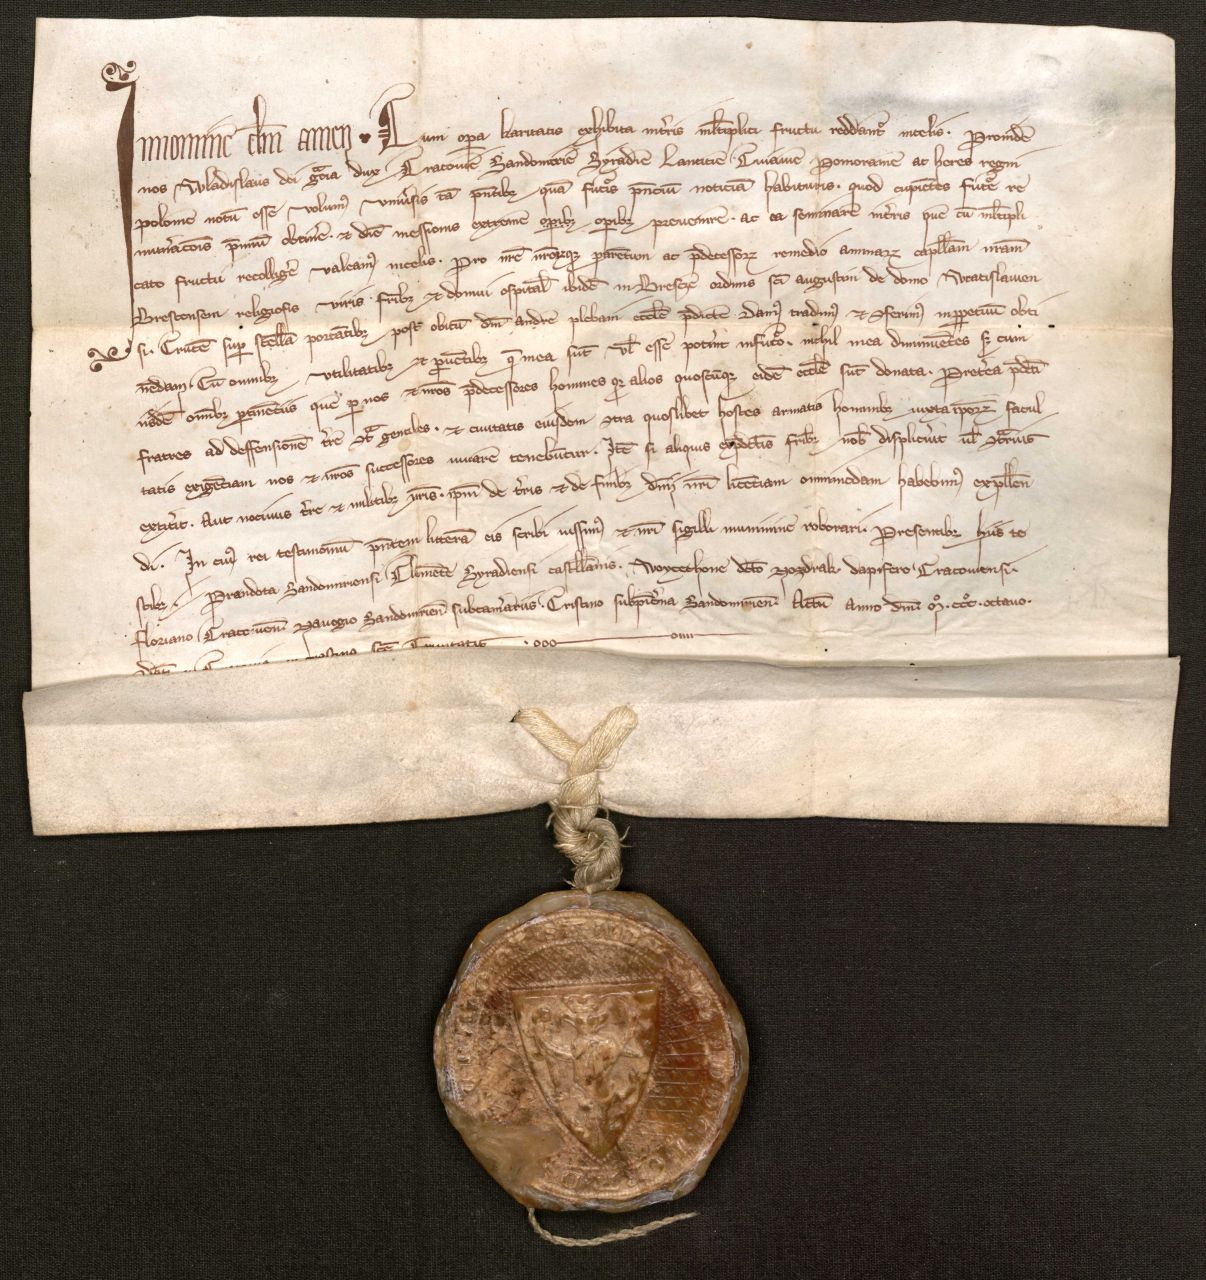 In nomine dni amen. Cum opera karitatis exhibita in tris multiplici fructu reddantur in celis. Proinde
nos Wladislaus dei gratia dux Cracovie Sandomirie Syradie Lancicie Cuiavie Pomoranie ac heres regni
polonie notum esse volumus universis tam presentibus quam futuris presencium noticiam habituris. quod cupientes future re
munerationis premium obtinere. et diem messionis extreme operibus prevenire. ac ea seminare in terris que cum multipli
cato fructu recolligere valeamus in celis. Pro nostre nostrorumque parentum ac predecessorum remedio animarum capellam nostram
Brestensem religiosis viris fratribus et domui ospitalis ibidem in Brescze ordinis sancti augustini de domo Wratislavien
si. Crucem super stellam portantibus post obitum domini andree plebani ecclesie predicte. Damus tradimus et conferimus in perpetuum obti
nendam. Cum omnibus utilitatibus et proventibus que in ea sunt vel esse poterint in futuro. nichil in ea diminuentes sed cum
iisdem omnibus pertinenciis que per nos et nostros predecessores homines alios quoscumque eidem ecclesie sunt donata. Preterea predicti
fratres ad deffensionem terre contra gentiles. et civitatis eiusdem contra quoslibet hostes armatis hominibus iuxta ipsorum facul
tatis exigentiam nos et nostros successores iuvare tenebuntur. Item si aliquis ex predictis fratribus nobis displicuerit vel contrarius
extiterit. Aut nocivus terre et militibus nostris. ipsum de terris et de finibus domini nostri licentiam omnimodam habebimus expellen
di. In cuius rei testimonium presentem litteram eis scribi iussimus et nostri sigilli munimine roborari. Presentibus hiis te
stibus. Prandota Sandomiriensi Clemente Syradiensi castellanis. Woycechone dicto dapifero Cracoviensi.
Floriano Cracovien. Sandomirien subcamerariis. Cristino subpincerna Sandomirien. Actum Anno domini Mo. CCCo. octavo.